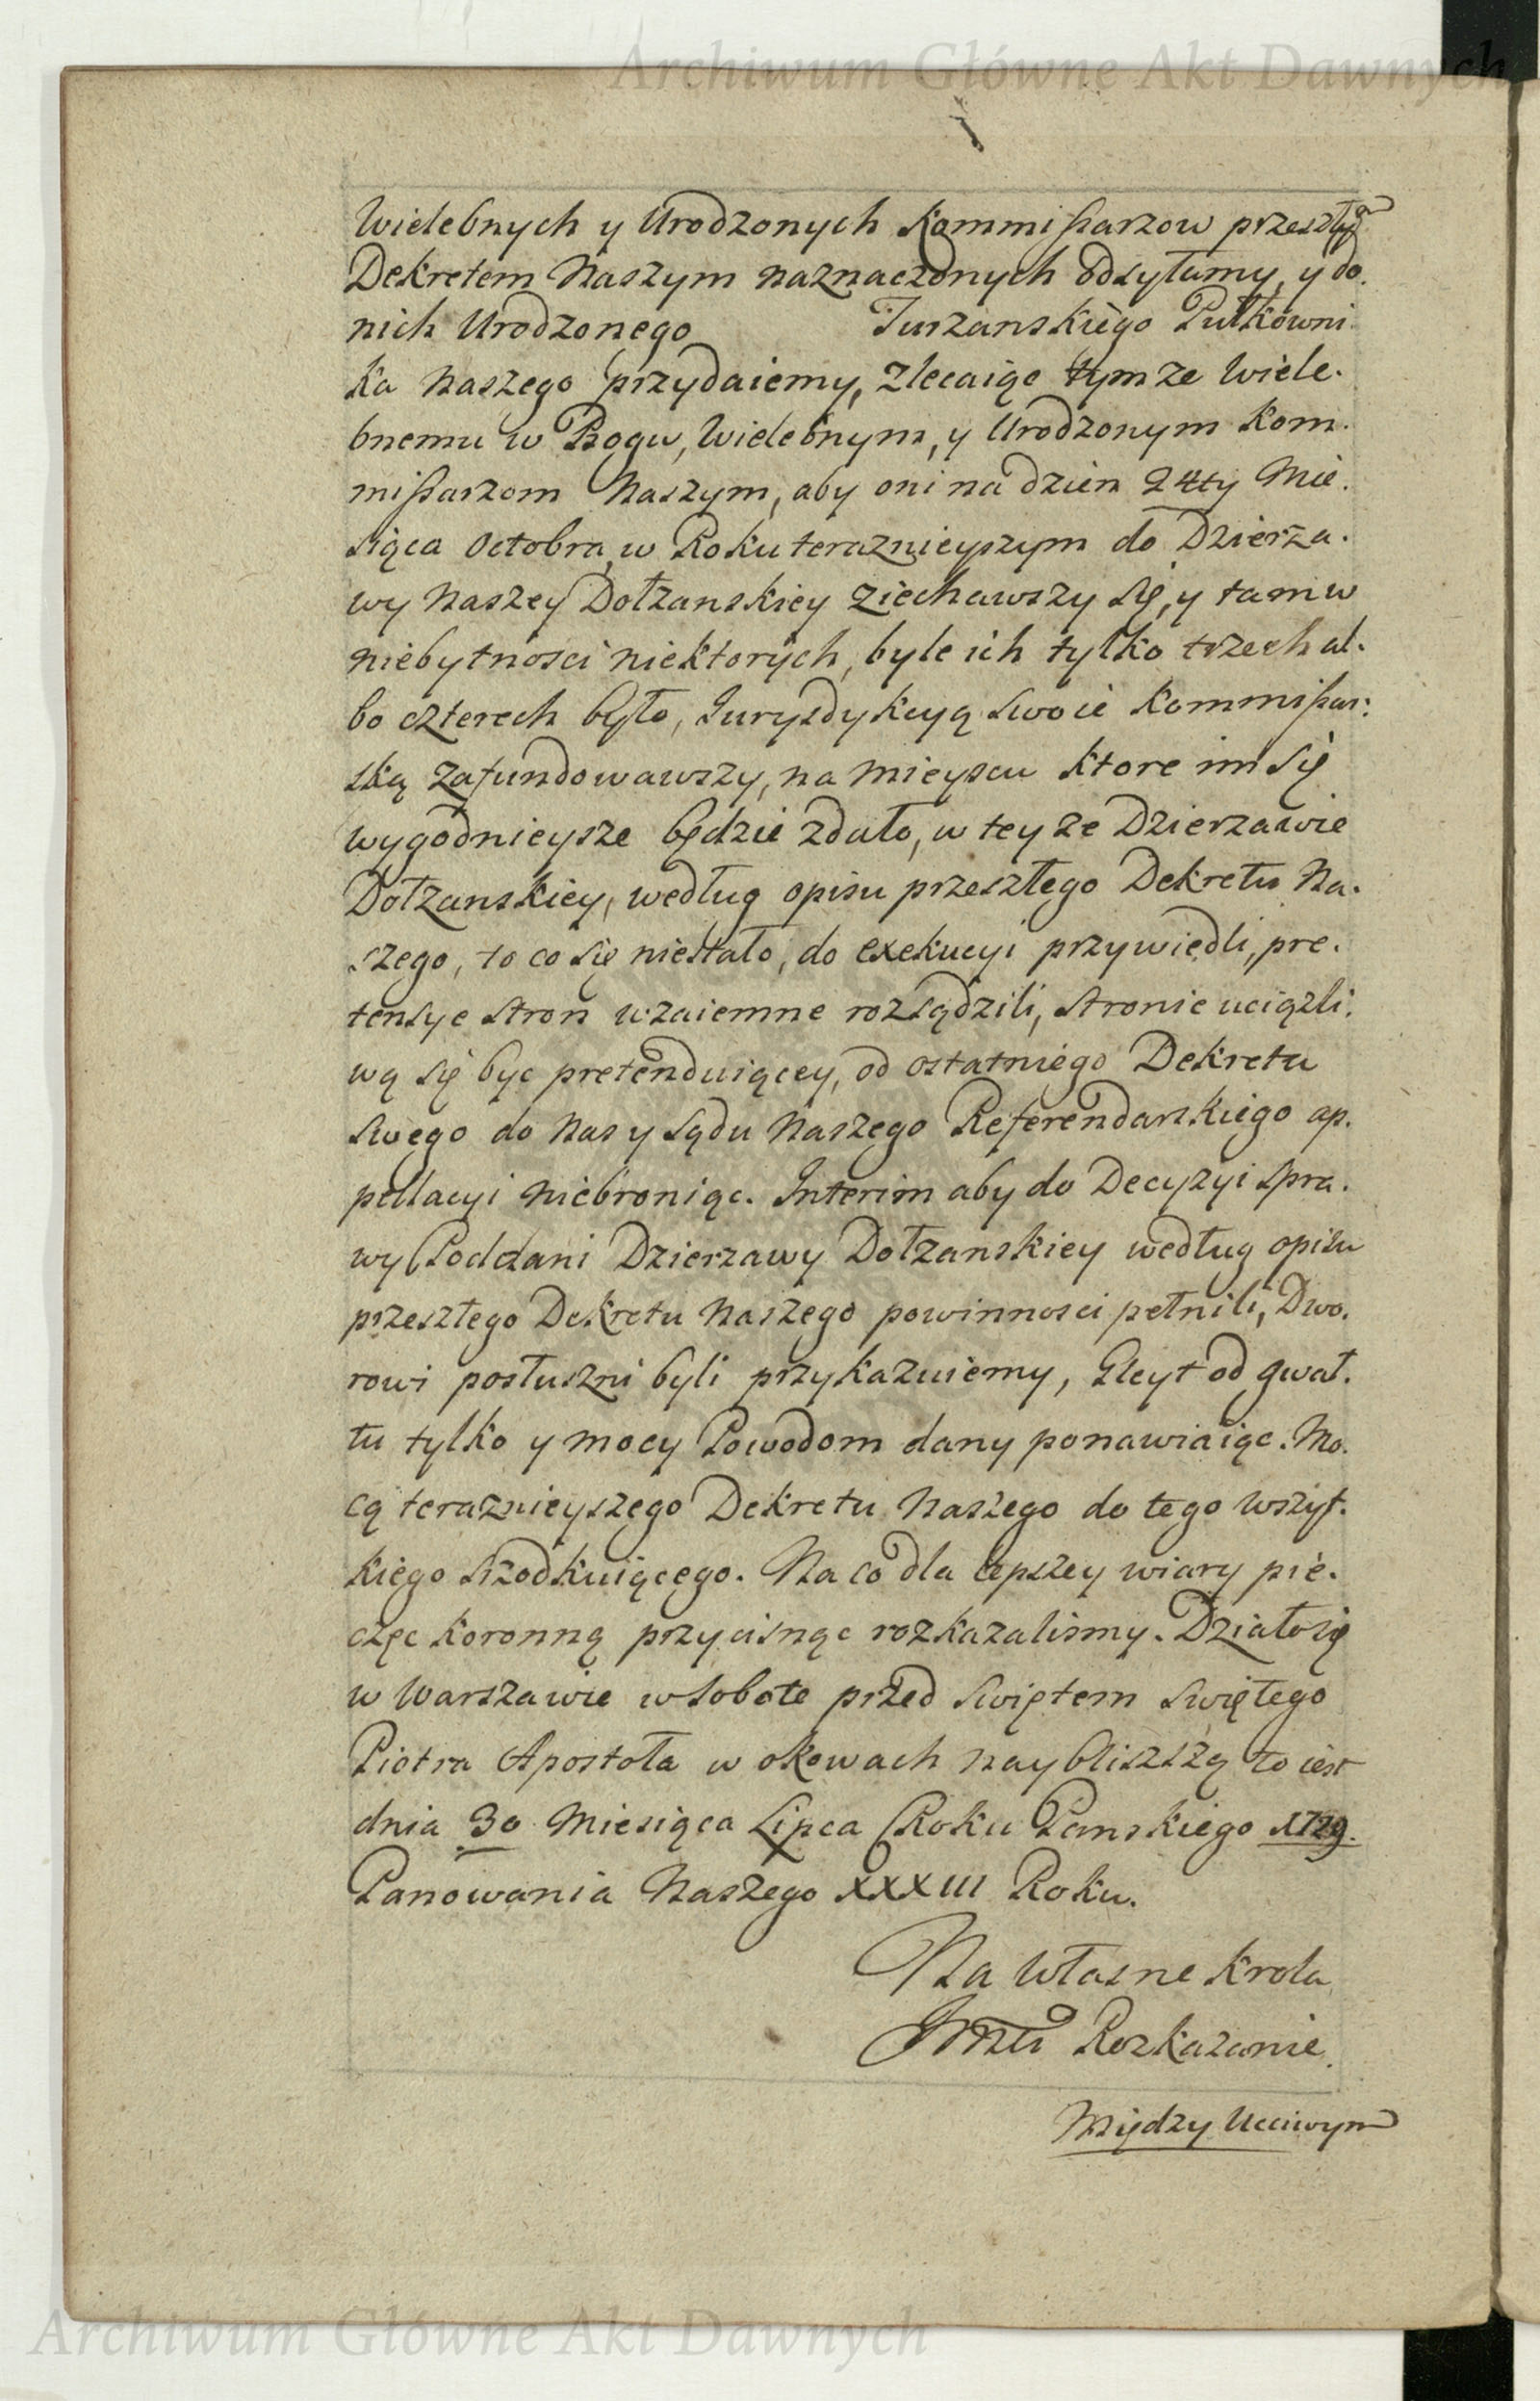 Archiwum Główne Akt Dawnych
Wielebnych y Urodzonych Kommissarzow przeszłym
Dekretem Naszym naznaczonych odsyłamy, y do
nich Urodzonego Turzanskiego Pułkowni
ka Naszego przydaiemy, Zlecaiąc tymze Wiele.
bnemu w Bogu, Wielebnym, y Urodzonym Kom.
missarzom Naszym, aby oni na dzien 24ty Mie.
siąca Octobra, w Roku teraznieyszym do Dzierza.
wy Naszey Dołzanskiey ziechawszy się, y tam w
niebytnosci niektorych, byle ich tylko trzech al.
bo czterech było, Jurysdykcyą swoie Kommissar:
ską zafundowawszy, na mieyscu ktore im się
wygodnieysze będzie zdało, w teyze Dzierzawie
Dołzanskiey, według opisu przeszłego Dekretu Na.
szego, to co się niestało, do exekucyi przywiedli, pre.
tensye stron wzaiemne rozsądzili, stronie uciązli.
wą się byc pretenduiącey, od ostatniego Dekretu
swego do Nas y Sądu Naszego Referendarskiego ap.
pellacyi niebroniąc. Interim aby do Decyzyi spra.
wy Poddani Dzierzawy Dołzanskiey według opisu
przeszłego Dekretu Naszego powinnosci pełnili, Dwo.
rowi posłuszni byli przykazuiemy, Gleyt od gwał.
tu tylko y mocy Powodom dany ponawiaiąc. Mo.
cą teraznieyszego Dekretu Naszego do tego wszyt.
kiego srzodkuiącego. Na co dla lepszey wiary pie.
częc koronną przycisnąc rozkazalismy. Działo się
w Warszawie w Sobote przed Swiętem Swiętego
Piotra Apostoła w okowach naybliszszą to iest
dnia 30 Miesiąca Lipca Roku Panskiego 1729.
Panowania Naszego XXXIII Roku.
Na Własne Krola
Jmsci Rozkazanie.
Między Ucciwym
Archiwum Główne Akt Dawnych